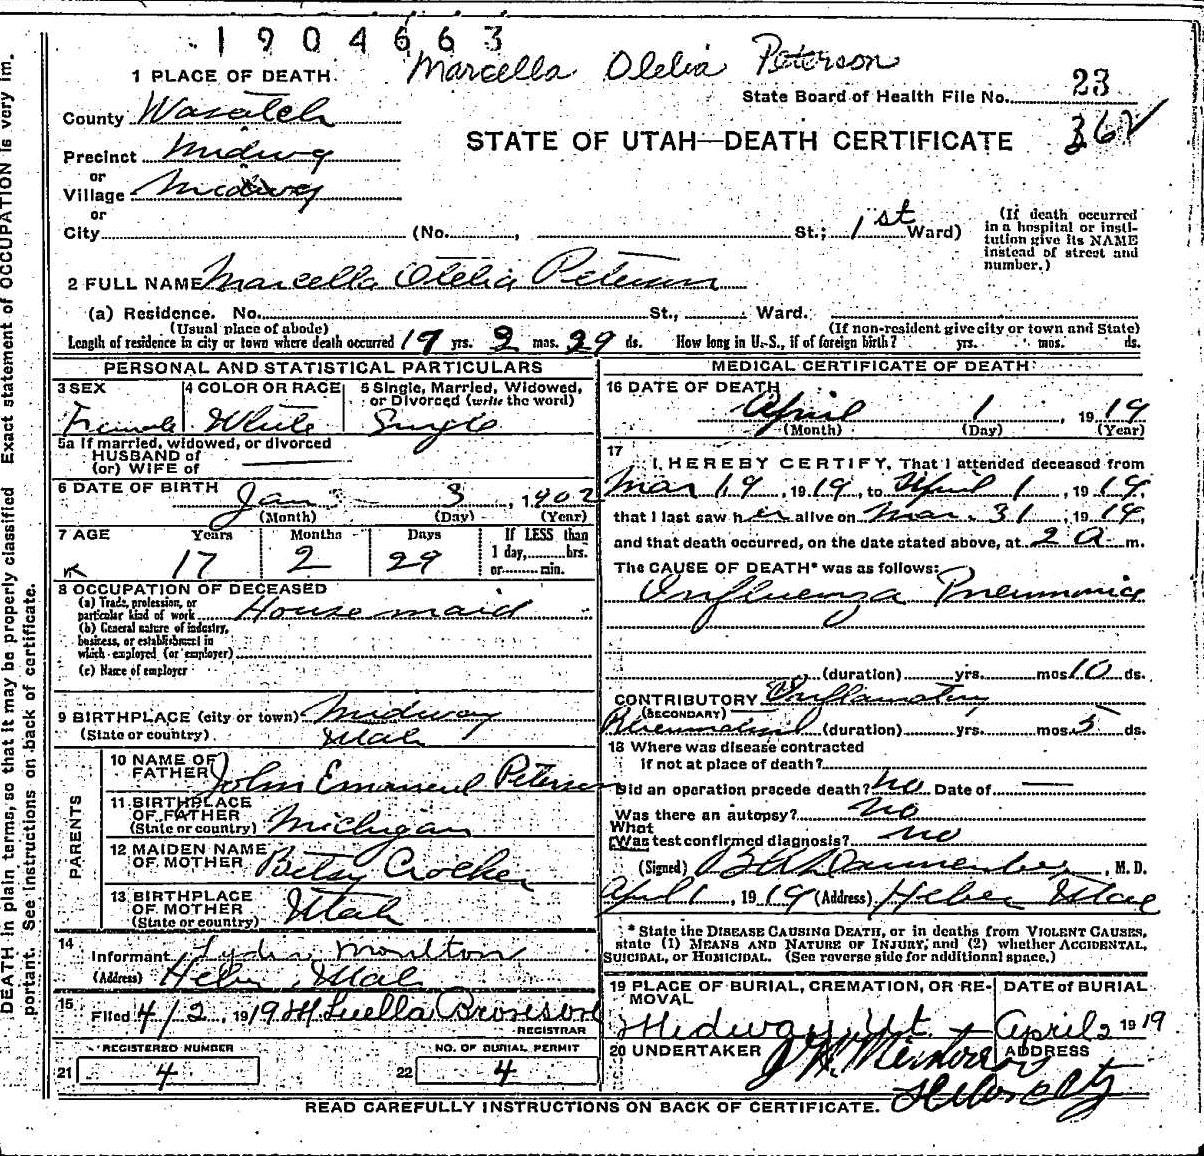 1904663
Marcella Olelia Peterson
1 PLACE OF DEATH.
State Board of Health File No. 23
County Wasatch
STATE OF UTAH—DEATH CERTIFICATE
362
Precinct Midwy
or
Village Midway
or
City (No. , St.; 1st Ward)
(If death occurred
in a hospital or insti-
tution give its NAME
instead of street and
number.)
2 FULL NAME Marcella Olelia Peterson
(a) Residence. No. St., Ward.
(Usual place of abode) (If non-resident give city or town and State)
Length of residence in city or town where death occurred 17 yrs. 2 mos. 29 ds. How long in U.S., if of foreign birth? yrs. mos. ds.
PERSONAL AND STATISTICAL PARTICULARS
3 SEX 4 COLOR OR RACE 5 Single, Married, Widowed,
or Divorced (write the word)
Female White Single
5a If married, widowed, or divorced
HUSBAND of
(or) WIFE of
6 DATE OF BIRTH Jan 3, 1902
(Month) (Day) (Year)
7 AGE Years Months Days If LESS than
1 day, hrs.
or min.
17 2 29
8 OCCUPATION OF DECEASED
(a) Trade, profession, or
particular kind of work House maid
(b) General nature of industry,
business, or establishment in
which employed (or employer)
(c) Name of employer
9 BIRTHPLACE (city or town) Midway
(State or country) Utah
PARENTS
10 NAME OF
FATHER John Emanuel Peterson
11 BIRTHPLACE
OF FATHER
(State or country) Michigan
12 MAIDEN NAME
OF MOTHER Betsy Crocker
13 BIRTHPLACE
OF MOTHER
(State or country) Utah
14
Informant Lydia Moulton
(Address) Heber, Utah
15
Filed 4/2, 1919 M Luella Bronson
REGISTRAR
REGISTERED NUMBER NO. OF BURIAL PERMIT
21 4 22 4
MEDICAL CERTIFICATE OF DEATH
16 DATE OF DEATH
April 1, 1919
(Month) (Day) (Year)
17
I HEREBY CERTIFY, That I attended deceased from
Mar 19, 1919, to April 1, 1919,
that I last saw her alive on Mar. 31, 1919,
and that death occurred, on the date stated above, at 2 a m.
The CAUSE OF DEATH* was as follows:
Influenza Pneumonia
(duration) yrs. mos. 10 ds.
CONTRIBUTORY Inflammatory
(SECONDARY)
Rheumatism (duration) yrs. mos. 5 ds.
18 Where was disease contracted
if not at place of death?
Did an operation precede death? no Date of —
Was there an autopsy? no
What
Was test confirmed diagnosis? no
(Signed) , M. D.
April 1, 1919 (Address) Heber Utah
* State the DISEASE CAUSING DEATH, or in deaths from VIOLENT CAUSES,
state (1) MEANS AND NATURE OF INJURY, and (2) whether ACCIDENTAL,
SUICIDAL, or HOMICIDAL. (See reverse side for additional space.)
19 PLACE OF BURIAL, CREMATION, OR RE-
MOVAL DATE OF BURIAL
Midway, Ut. April 2 1919
20 UNDERTAKER ADDRESS
READ CAREFULLY INSTRUCTIONS ON BACK OF CERTIFICATE.
DEATH in plain terms, so that it may be properly classified Exact statement of OCCUPATION is very im.
portant. See instructions on back of certificate.